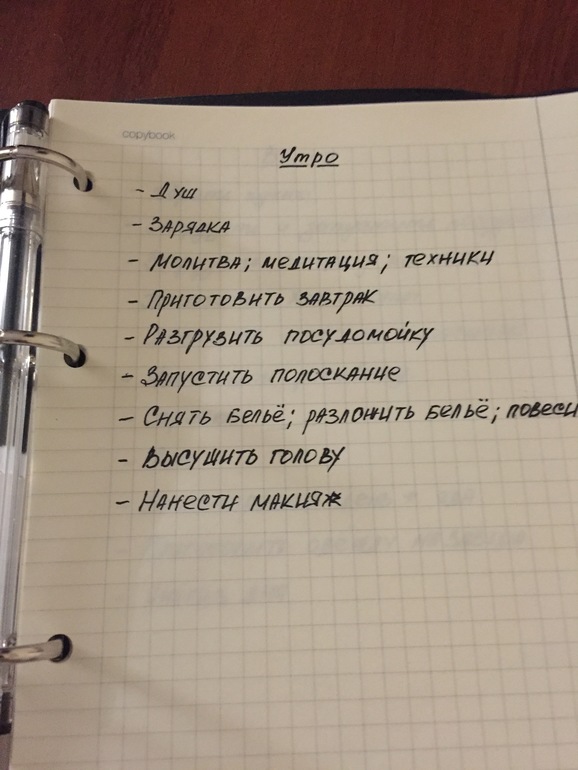 copybook
Утро
- Душ
- Зарядка
- Молитва; медитация; техники
- Приготовить завтрак
- Разгрузить посудомойку
- Запустить полоскание
- Снять бельё; разложить бельё; повеси
- Высушить голову
- Нанести макияж